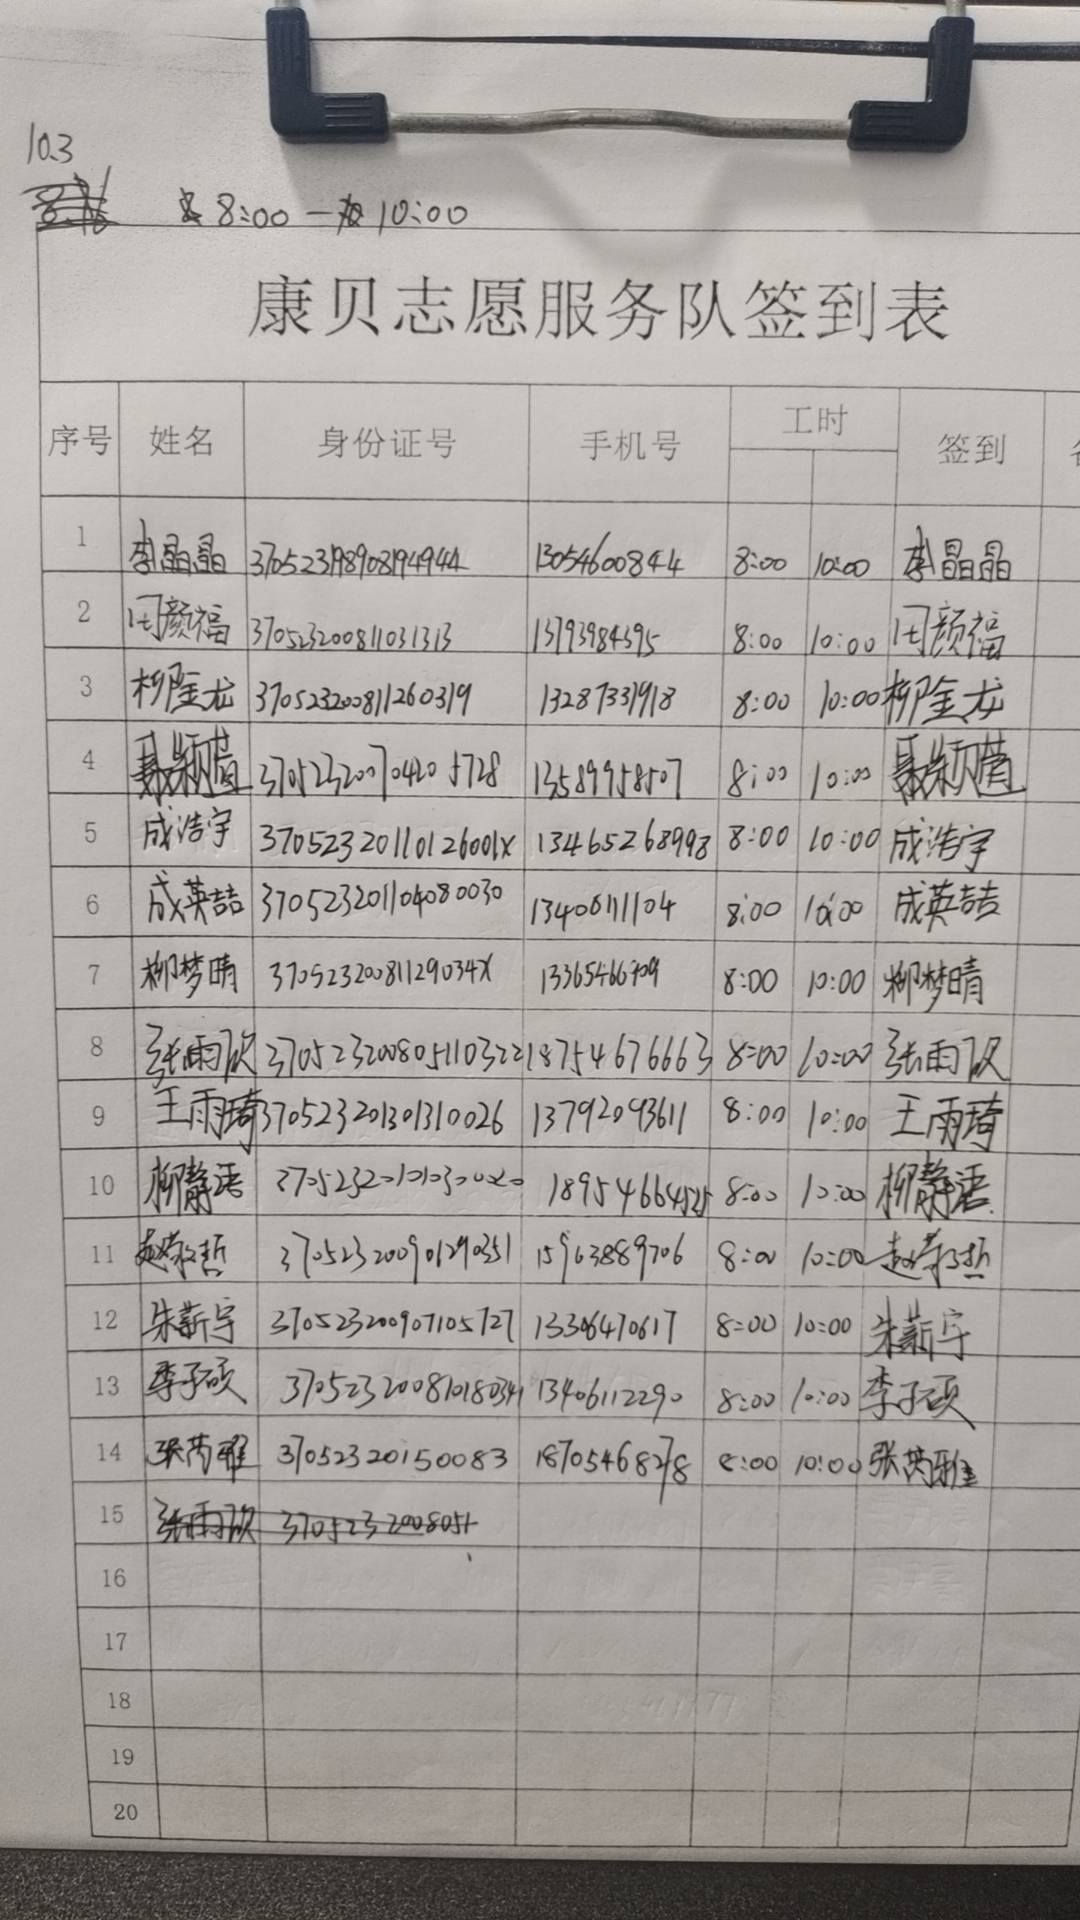 10.3
8:00 — 10:00
康贝志愿服务队签到表
序号 姓名 身份证号 手机号 工时 签到
1 李晶晶 370523198908194944 13054600844 8:00 10:00 李晶晶
2 闫颜福 370523200811031313 13793984395 8:00 10:00 闫颜福
3 柳金龙 370523200811260319 13287331918 8:00 10:00 柳金龙
4 370523200704205728 13589958507 8:00 10:00
5 成浩宇 37052320110126001X 13465268998 8:00 10:00 成浩宇
6 成英喆 370523201104080030 13406111104 8:00 10:00 成英喆
7 柳梦晴 37052320081129034X 8:00 10:00 柳梦晴
8 张雨欣 370523200805110322 18754676663 8:00 10:00 张雨欣
9 王雨琦 370523201301310026 13792093611 8:00 10:00 王雨琦
10 柳静语 370523201010300020 18954664525 8:00 10:00 柳静语
11 370523200901290351 15963889706 8:00 10:00
12 朱薪宇 370523200907105727 13306470617 8:00 10:00 朱薪宇
13 李子硕 370523200810180341 13406112290 8:00 10:00 李子硕
14 37052320150083 18705468278 8:00 10:00
15 张雨欣 3705232008051
16
17
18
19
20